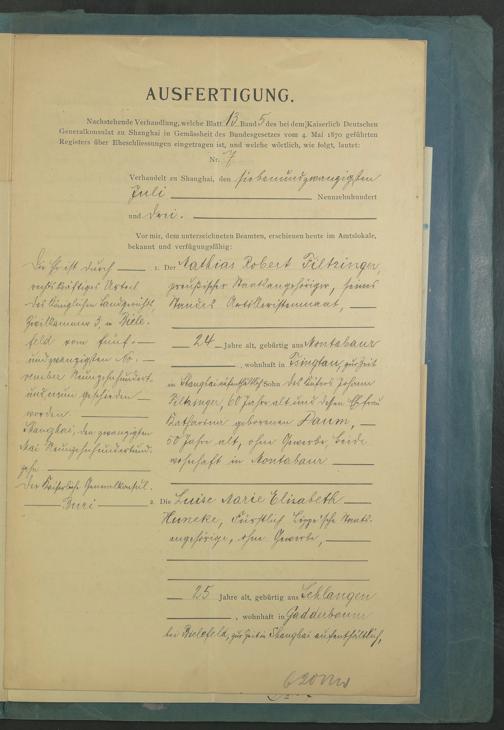 AUSFERTIGUNG.
Nachstehende Verhandlung, welche Blatt 13 Band 5 des bei dem Kaiserlich Deutschen
Generalkonsulat zu Shanghai in Gemässheit des Bundesgesetzes vom 4. Mai 1870 geführten
Registers über Eheschliessungen eingetragen ist, und welche wörtlich, wie folgt, lautet:
Nr. 7
Verhandelt zu Shanghai, den siebenundzwanzigsten
Juli Neunzehnhundert
und drei.
Vor mir, dem unterzeichneten Beamten, erschienen heute im Amtslokale,
bekannt und verfügungsfähig:
1. Der Mathias Robert Filtzinger,
preußischer Staatsangehöriger, seines
Standes
24 Jahre alt, gebürtig aus Montabaur
, wohnhaft in Tsingtau, zur Zeit
in Shanghai aufenthältlich Sohn des Küfers Johann
Filtzinger, 60 Jahre alt und dessen Ehefrau
Katharina geborenen Daum,
50 Jahre alt, ohne Gewerbe beide
wohnhaft in Montabaur
Die Ehe ist durch
rechtskräftiges Urteil
des Königlichen Landgerichts,
Zivilkammer 3, in Biele-
feld vom fünf-
undzwanzigsten No-
vember Neunzehnhundert-
undneun geschieden
worden.
Shanghai, den zwanzigsten
Mai Neunzehnhundertund-
zehn
Der Kaiserliche Generalkonsul.
Buri
2. Die Luise Marie Elisabeth
Huneke, Fürstlich Lippe'sche Staats-
angehörige, ohne Gewerbe,
25 Jahre alt, gebürtig aus Schlangen
, wohnhaft in Gadderbaum
bei Bielefeld, zur Zeit in Shanghai aufenthältlich,